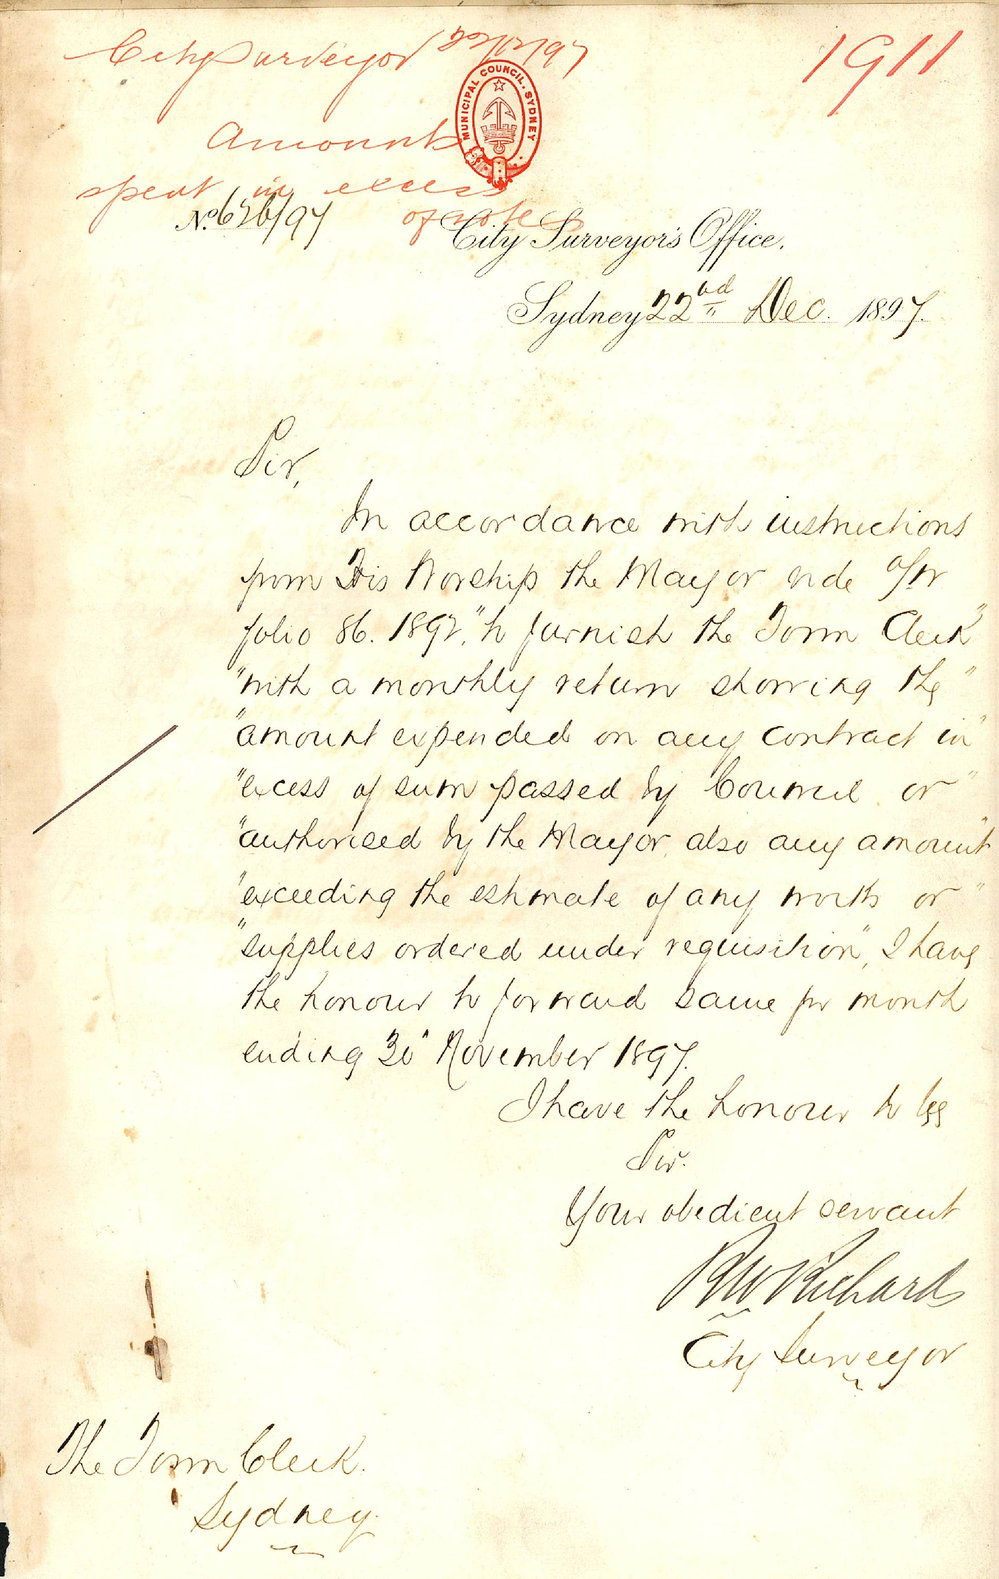 City Surveyor 22/12/97
1911
MUNICIPAL COUNCIL. SYDNEY
Amounts
spent in excess
of votes
No. 626/97
City Surveyor's Office.
Sydney 22nd Dec. 1897.
Sir,
In accordance with instructions
from His Worship the Mayor vide
folio 86. 1892, "to furnish the Town Clerk"
"with a monthly return showing the"
"amount expended on any contract in"
"excess of sum passed by Council or"
"authorised by the Mayor, also any amount"
"exceeding the estimate of any works or"
"supplies ordered under requisition", I have
the honour to forward same for month
ending 30" November 1897.
I have the honour to be
Sir.
Your obedient servant
RW Richards
City Surveyor
The Town Clerk.
Sydney